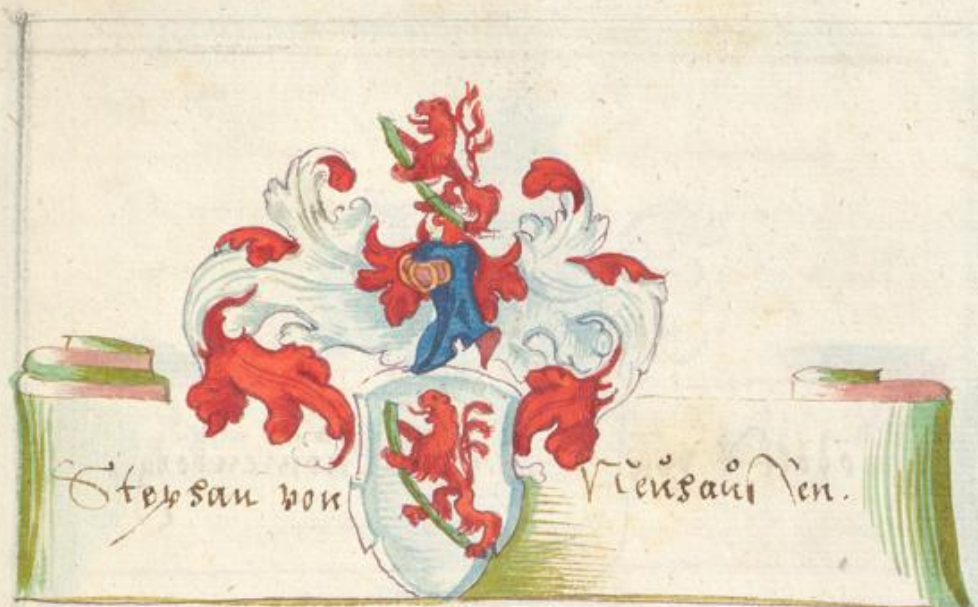 Stephan von Neuhausen.